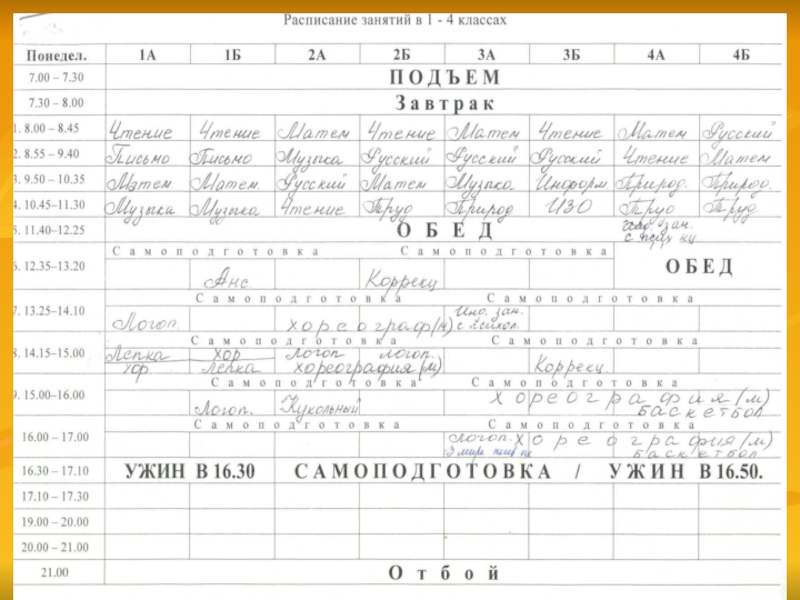 Расписание занятий в 1 - 4 классах
Понедел. 1А 1Б 2А 2Б 3А 3Б 4А 4Б
7.00 – 7.30 ПОДЪЕМ
7.30 – 8.00 Завтрак
1. 8.00 – 8.45 Чтение Чтение Матем Чтение Матем Чтение Матем Русский
2. 8.55 – 9.40 Письмо Письмо Музыка Русский Русский Русский Чтение Матем
3. 9.50 – 10.35 Матем Матем. Русский Матем Музыка Информ Природ. Природ.
4. 10.45–11.30 Музыка Музыка Чтение Труд Природ ИЗО Труд Труд
5. 11.40–12.25 ОБЕД зан.
Самоподготовка Самоподготовка
6. 12.35–13.20 Анс. Коррекц ОБЕД
Самоподготовка Самоподготовка
7. 13.25–14.10 Логоп. хореограф(м) Инд. зан. с психол.
Самоподготовка Самоподготовка
8. 14.15–15.00 Лепка хор логоп логоп.
хор лепка хореография(м) Коррекц
Самоподготовка Самоподготовка
9. 15.00–16.00 Логоп. Кукольный хореография(м)
баскетбол
Самоподготовка Самоподготовка
16.00 – 17.00 Логоп. хореография(м)
баскетбол
16.30 – 17.10 УЖИН В 16.30 САМОПОДГОТОВКА / УЖИН В 16.50.
17.10 – 17.30
19.00 – 20.00
20.00 – 21.00
21.00 Отбой